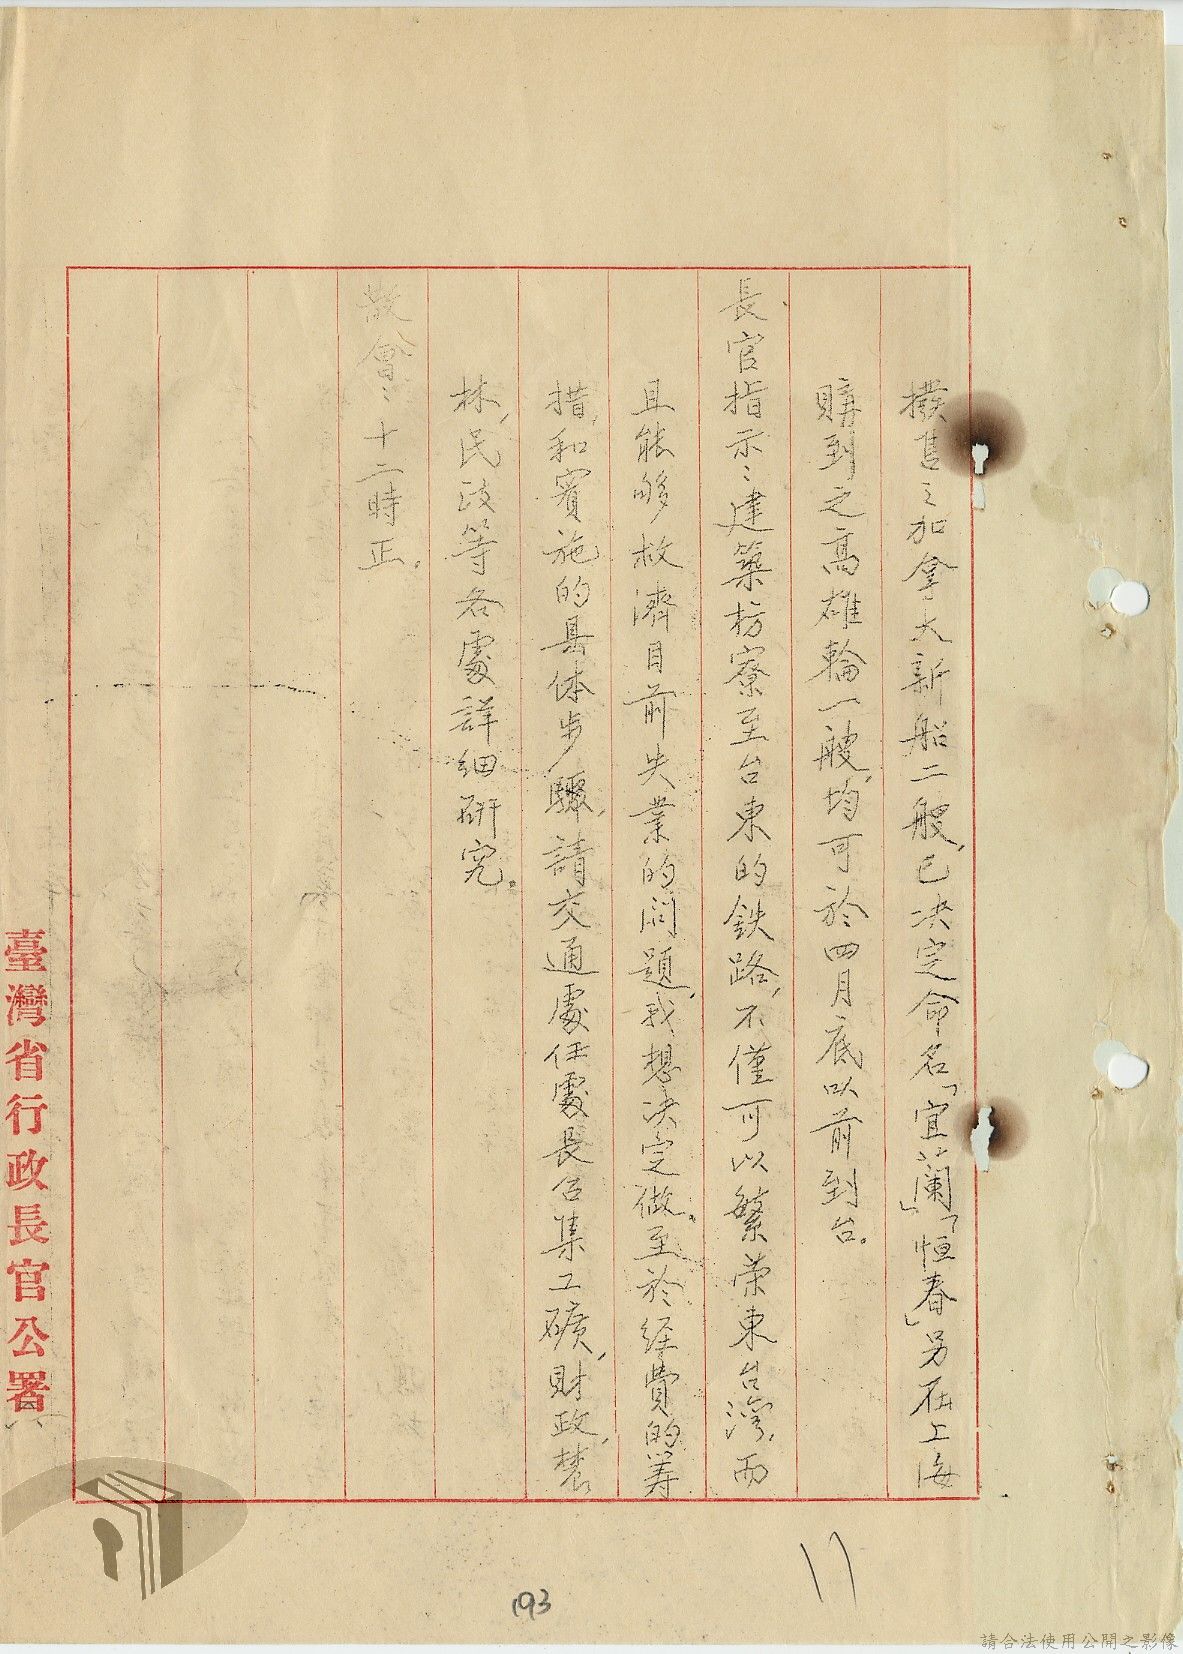 撥售之加拿大新船二艘,已决定命名「宜蘭」「恒春」另在上海
購到之高雄輪一艘,均可於四月底以前到台。
長官指示:建築枋寮至台東的鉄路,不僅可以繁荣東台灣,而
且能够救濟目前失業的問題,我想决定做。至於経費的筹
措,和實施的具体步驟,請交通處任處長召集工礦,財政,農
林,民政等各處詳細研究。
散會:十二時正。
臺灣省行政長官公署
11
193
請合法使用公開之影像